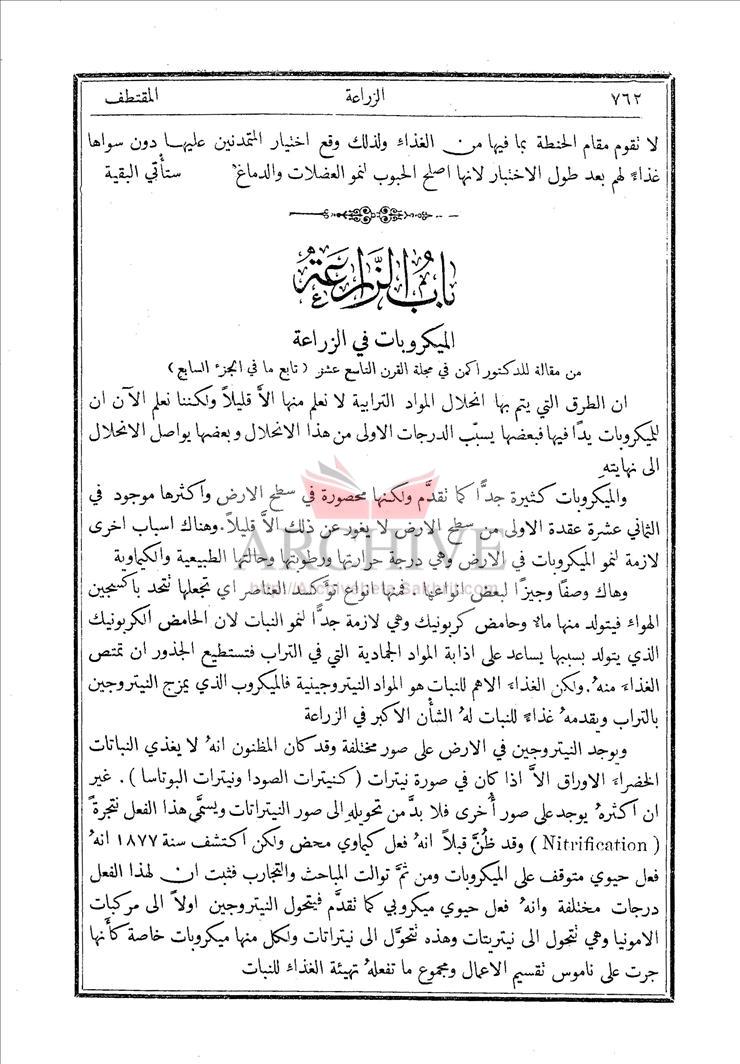 ٧٦٢ الزراعة المقتطف
لا تقوم مقام الحنطة بما فيها من الغذاء ولذلك وقع اختيار المتمدنين عليها دون سواها
غذاءً لهم بعد طول الاختبار لانها اصلح الحبوب لنمو العضلات والدماغ ستأتي البقية
باب الزراعة
الميكروبات في الزراعة
من مقالة للدكتور اكمن في مجلة القرن التاسع عشر ( تابع ما في الجزء السابع )
ان الطرق التي يتم بها انحلال المواد الترابية لا نعلم منها الاَّ قليلاً ولكننا نعلم الآن ان
للميكروبات يدًا فيها فبعضها يسبّب الدرجات الاولى من هذا الانحلال وبعضها يواصل الانحلال
الى نهايتهِ
والميكروبات كثيرة جدًّا كما تقدَّم ولكنها محصورة في سطح الارض واكثرها موجود في
الثماني عشرة عقدة الاولى من سطح الارض لا يغور عن ذلك الاَّ قليلاً. وهناك اسباب اخرى
لازمة لنمو الميكروبات في الارض وهي درجة حرارتها ورطوبتها وحالتها الطبيعية والكيماوية
وهاك وصفًا وجيزًا لبعض انواعها. فمنها انواع توَّكسد العناصر اي تجعلها تتحد باكسجين
الهواء فيتولد منها ماءٌ وحامض كربونيك وهي لازمة جدًّا لنمو النبات لان الحامض الكربونيك
الذي يتولد بسببها يساعد على اذابة المواد الجمادية التي في التراب فتستطيع الجذور ان تمتص
الغذاءَ منهُ. ولكن الغذاءَ الاهم للنبات هو المواد النيتروجينية فالميكروب الذي يمزج النيتروجين
بالتراب ويقدمهُ غذاءً للنبات لهُ الشأن الاكبر في الزراعة
ويوجد النيتروجين في الارض على صور مختلفة وقد كان المظنون انهُ لا يغذي النباتات
الخضراءَ الاوراق الاَّ اذا كان في صورة نيترات ( كنيترات الصودا ونيترات البوتاسا ). غير
ان اكثرهُ يوجد على صور أُخرى فلا بدَّ من تحويلهِ الى صور النيتراتات ويسمَّى هذا الفعل نتجرةً
( Nitrification ) وقد ظُنَّ قبلاً انهُ فعل كيماوي محض ولكن اكتشف سنة ١٨٧٧ انهُ
فعل حيوي متوقف على الميكروبات ومن ثمَّ توالت المباحث والتجارب فثبت ان لهذا الفعل
درجات مختلفة وانهُ فعل حيوي ميكروبي كما تقدَّم فيتحول النيتروجين اولاً الى مركبات
الامونيا وهي تتحول الى نيتريتات وهذه تتحوَّل الى نيتراتات ولكل منها ميكروبات خاصة كأَنها
جرت على ناموس تقسيم الاعمال ومجموع ما تفعلهُ تهيئة الغذاء للنبات
ARCHIVE
http://Archivebeta.Sakhrit.com